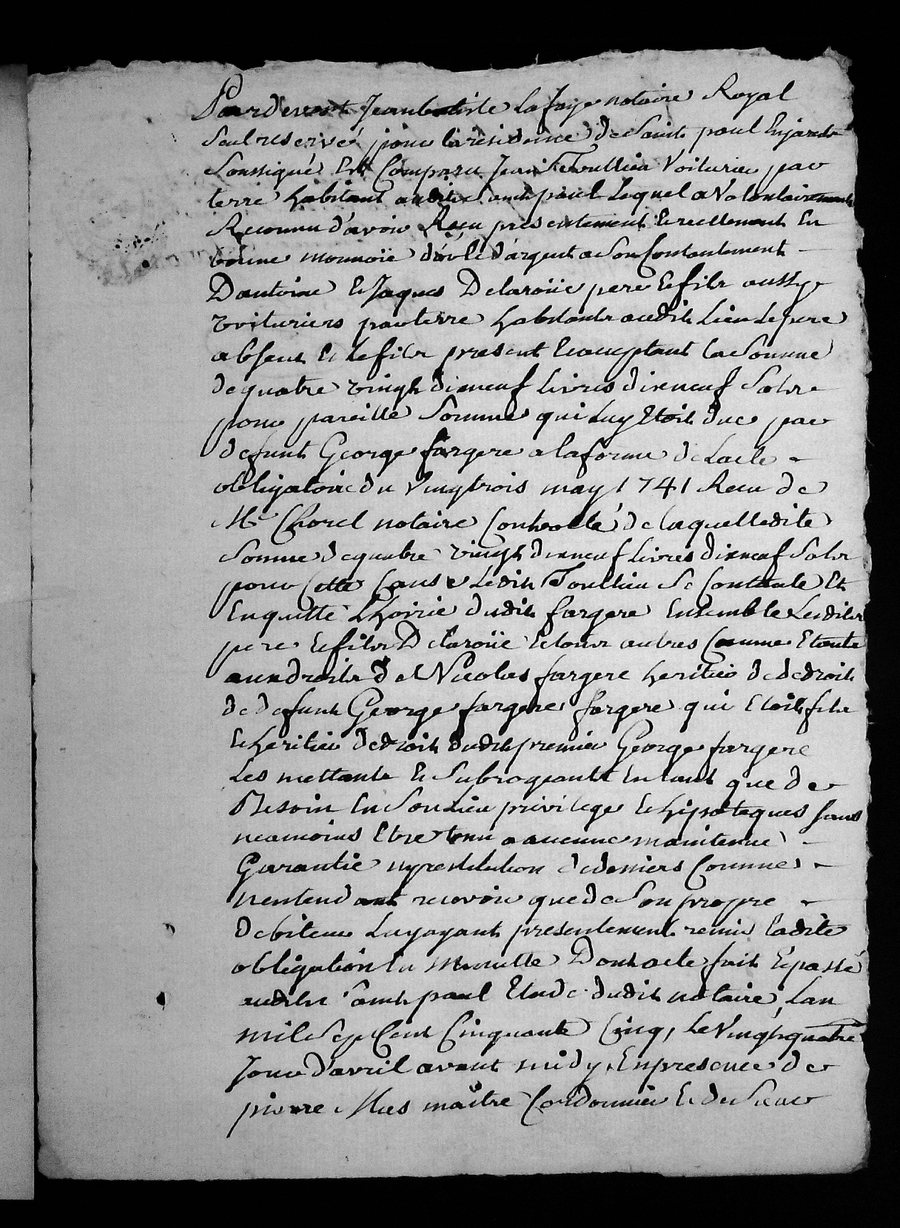 Pardevant Jeanbatiste Lafaye notaire Royal
Seul reservé pour la residence de Saint paul Enjarest
Soussigné Est Comparu Jean Toullieu Voiturier par
terre habitant audit Saint paul Lequel a Volontairement
Reconnu d'avoir Receu presentement Et reellement En
bonne monnoïe d'or Et d'argent a Son Contantement
D'antoine Et Jaques Delaroüe pere Et fils aussy
voituriers par terre habitants audit Lieu Le pere
absent Et Le fils present Et acceptant La Somme
de quatre vingt dixneuf Livres dixneuf Sols
pour pareille Somme qui Luy Etoit due par
defunt George fargere a la forme de Lacte
obligatoire du Vingt trois may 1741 Receu de
Me Chorel notaire Controllé de laquelle dite
Somme de quatre vingt dixneuf Livres dixneuf Sols
pour Cette Cause Ledit Toullieu Se Contante Et
En quitte L'hoirie dudit fargere Ensemble Lesdits
pere Et fils Delaroüe Et tous autres Comme Etants
aux droits de Nicolas fargere heritier de droit
de defunt George fargere fargere qui Etoit fils
Et heritier de droit dudit premier George fargere
Les mettants Et Subrogeants En tant que de
Besoin En Son Lieu privilege Et hipoteques Sans
neamoins Etre tenu a aucune maintenue
Garantie ny restitution de deniers Comme
nentendant recevoir que de Son propre
debiteur Luy ayant presentement remis Ladite
obligation En Minutte Dont acte fait Et passé
audit Saint paul Etude dudit notaire, Lan
mil Sept Cent Cinquante Cinq, Le Vingtquatre
Jour d'avril avant midy, En presence de
pierre Mies maître Cordonnier Et de Sieur